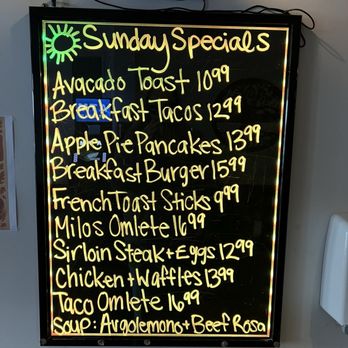 Sunday Specials
Avacado Toast 1099
Breakfast Tacos 1299
Apple Pie Pancakes 1399
Breakfast Burger 1599
French Toast Sticks 999
Milos Omlete 1699
Sirloin Steak + Eggs 1299
Chicken + Waffles 1399
Taco Omlete 1699
Soup: Avgolemono + Beef Rosa